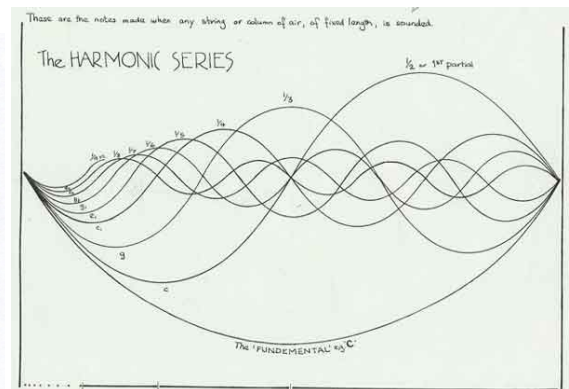 These are the notes made when any string or column of air, of fixed length, is sounded.
The HARMONIC SERIES
1/2 or 1ST partial
1/3
1/4
1/5
1/6
1/7
1/8
c
g
c
The 'FUNDEMENTAL' eg 'C'